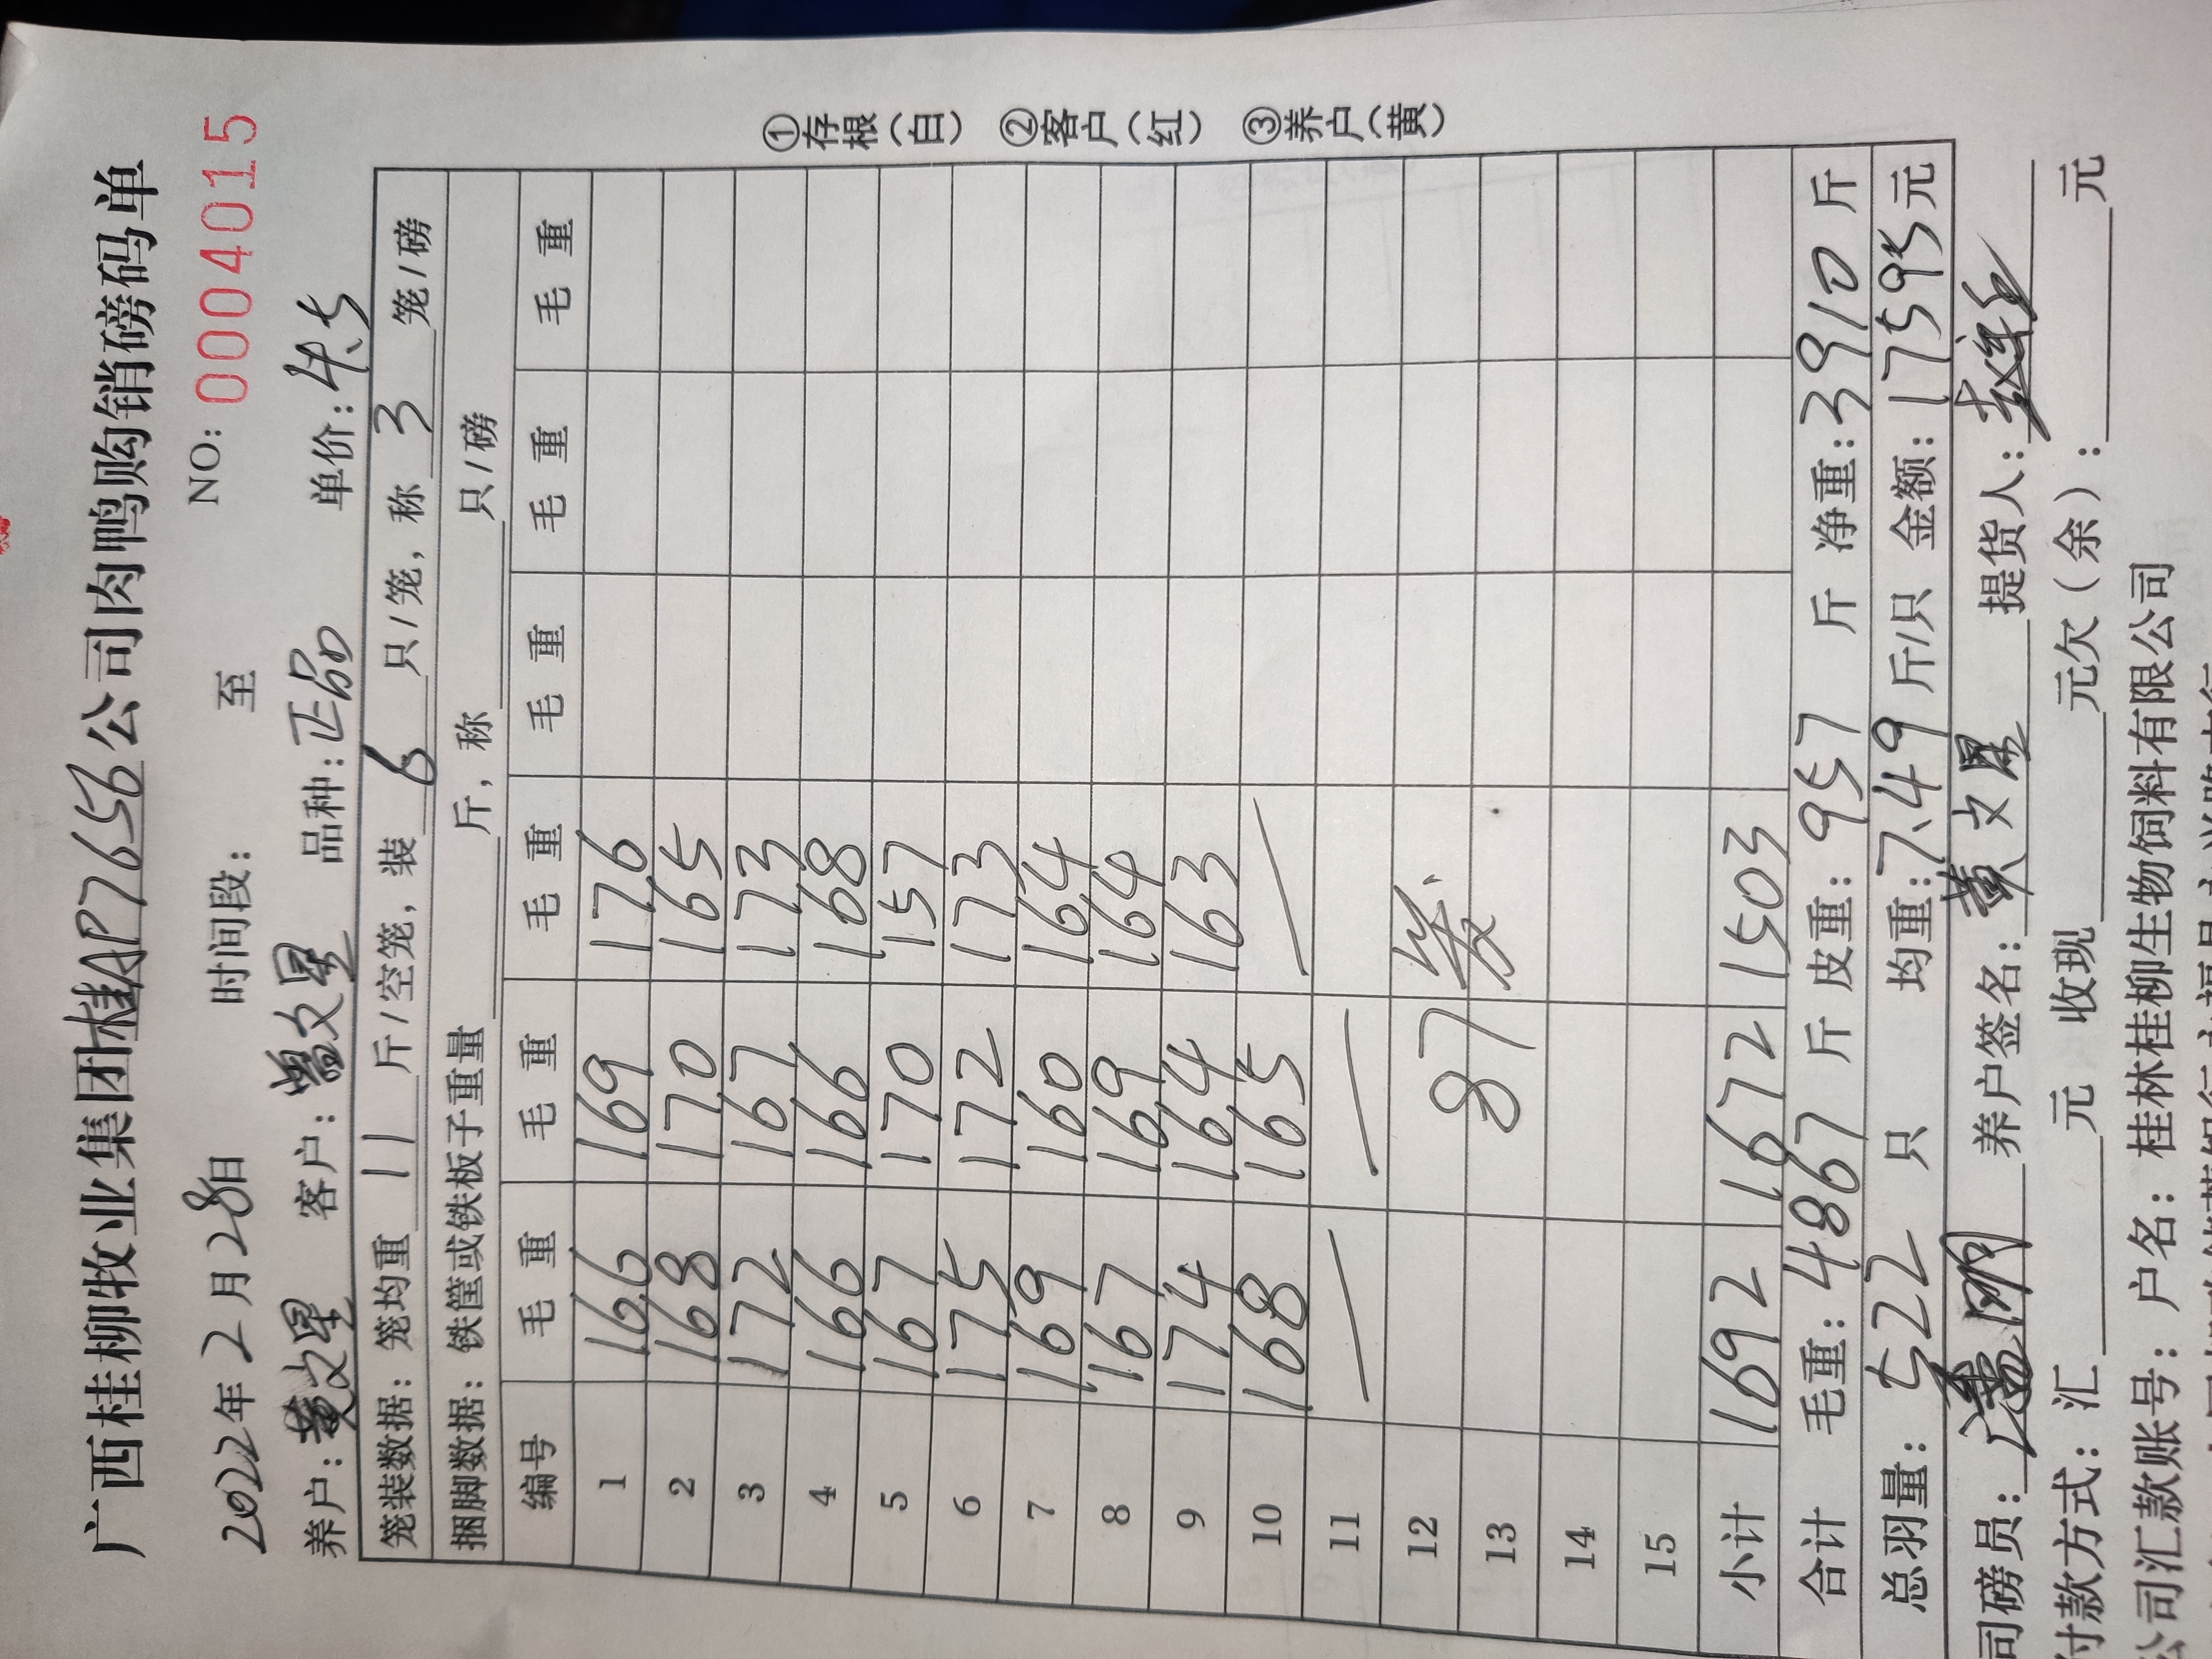 广西桂柳牧业集团桂AP7656公司肉鸭购销磅码单
2022年2月28日 时间段： 至 NO：0004015
养户：黄文星 客户：曾文星 品种：正品 单价：4.5
笼装数据：笼均重 11 斤/空笼，装 6 只/笼，称 3 笼/磅
捆脚数据：铁筐或铁板子重量 斤，称 只/磅
编号 毛重 毛重 毛重 毛重 毛重 毛重
1 166 169 176
2 168 170 165
3 172 167 173
4 166 166 168
5 167 170 157
6 175 172 173
7 169 160 164
8 167 169 164
9 174 164 163
10 168 165 —
11 — —
12
13 87
14
15
小计 1692 1672 1503
合计 毛重：4867 斤 皮重：957 斤 净重：3910 斤
总羽量：522 只 均重：7.49 斤/只 金额：17595 元
司磅员： 养户签名：黄文星 提货人：
付款方式：汇 元 收现 元欠（余）： 元
公司汇款账号：户名：桂林桂柳生物饲料有限公司
①存根（白） ②客户（红） ③养户（黄）